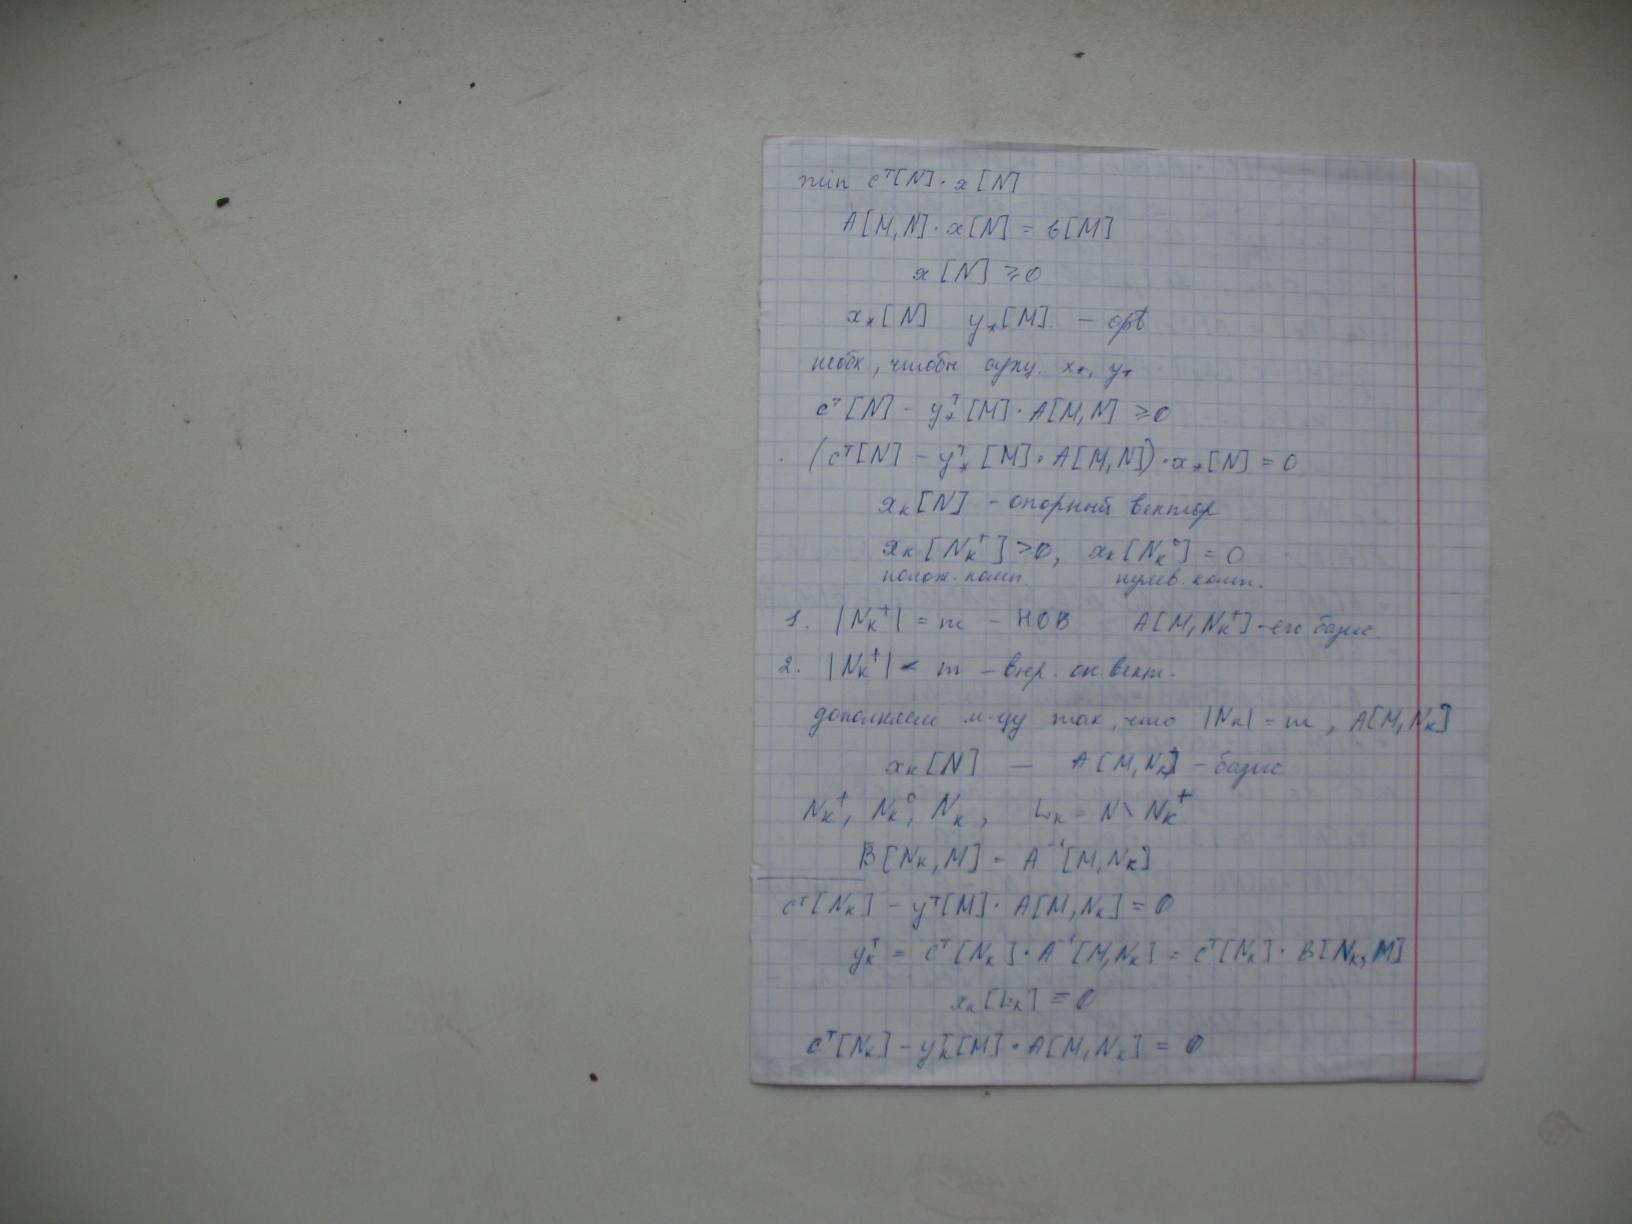 min cᵀ[N]·x[N]
A[M,N]·x[N] = b[M]
x[N] ≥ 0
x*[N] y*[M] – opt
необх, чтобы сущ. x*, y*
cᵀ[N] – y*ᵀ[M]·A[M,N] ≥ 0
(cᵀ[N] – y*ᵀ[M]·A[M,N])·x*[N] = 0
xₖ[N] – опорный вектор
xₖ[Nₖ⁺] > 0, xₖ[Nₖ⁰] = 0
полож. комп. нулев. комп.
1. |Nₖ⁺| = m – НОВ A[M,Nₖ⁺] – его базис.
2. |Nₖ⁺| < m – выр. оп. вект.
дополняем м-цу так, что |Nₖ| = m, A[M,Nₖ]
xₖ[N] — A[M,Nₖ] – базис
Nₖ⁺, Nₖ⁰, Nₖ, Lₖ = N \ Nₖ⁺
B[Nₖ,M] = A⁻¹[M,Nₖ]
cᵀ[Nₖ] – yᵀ[M]·A[M,Nₖ] = 0
yₖᵀ = cᵀ[Nₖ]·A⁻¹[M,Nₖ] = cᵀ[Nₖ]·B[Nₖ,M]
xₖ[Lₖ] = 0
cᵀ[Nₖ] – yₖᵀ[M]·A[M,Nₖ] = 0